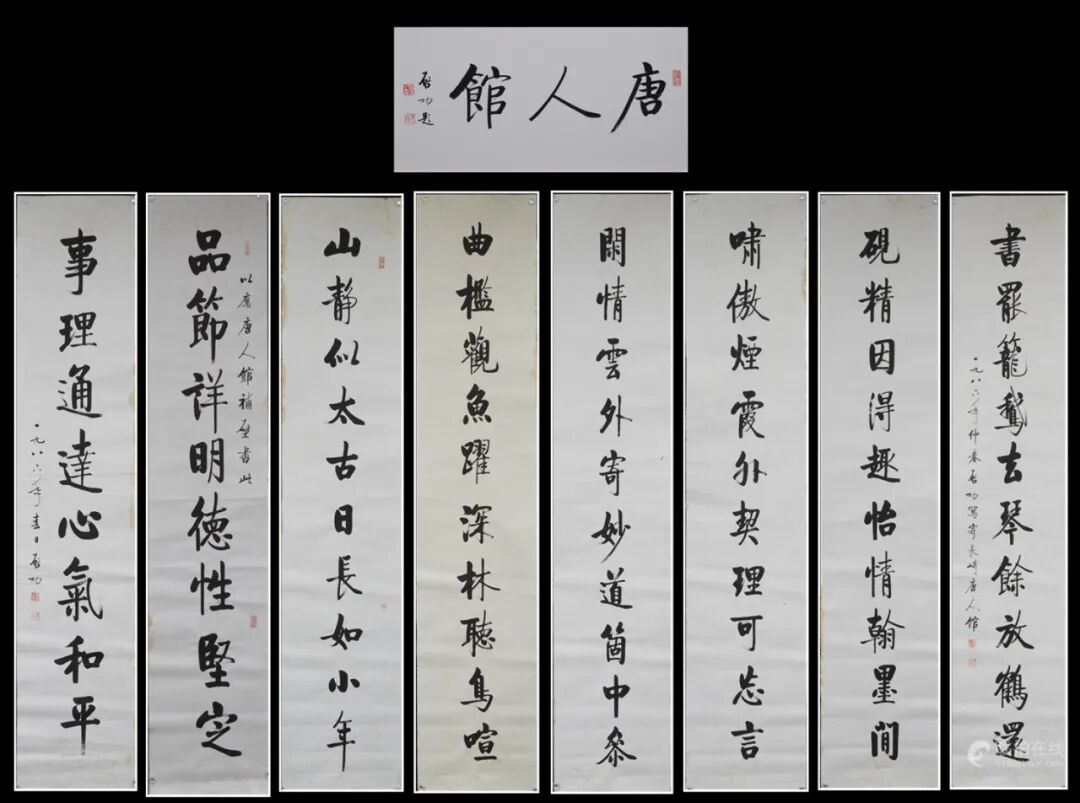 唐人館
启功题
書罷籠鵞去琴餘放鶴還
一九八六年仲春启功寫寄長崎唐人館
硯精因得趣怡情翰墨間
嘯傲煙霞外契理可忘言
閑情雲外寄妙道箇中参
曲檻觀魚躍深林聽鳥喧
山静似太古日長如小年
以應唐人館補壁書此
品節詳明德性堅定
事理通達心氣和平
一九八六年春日启功
在线